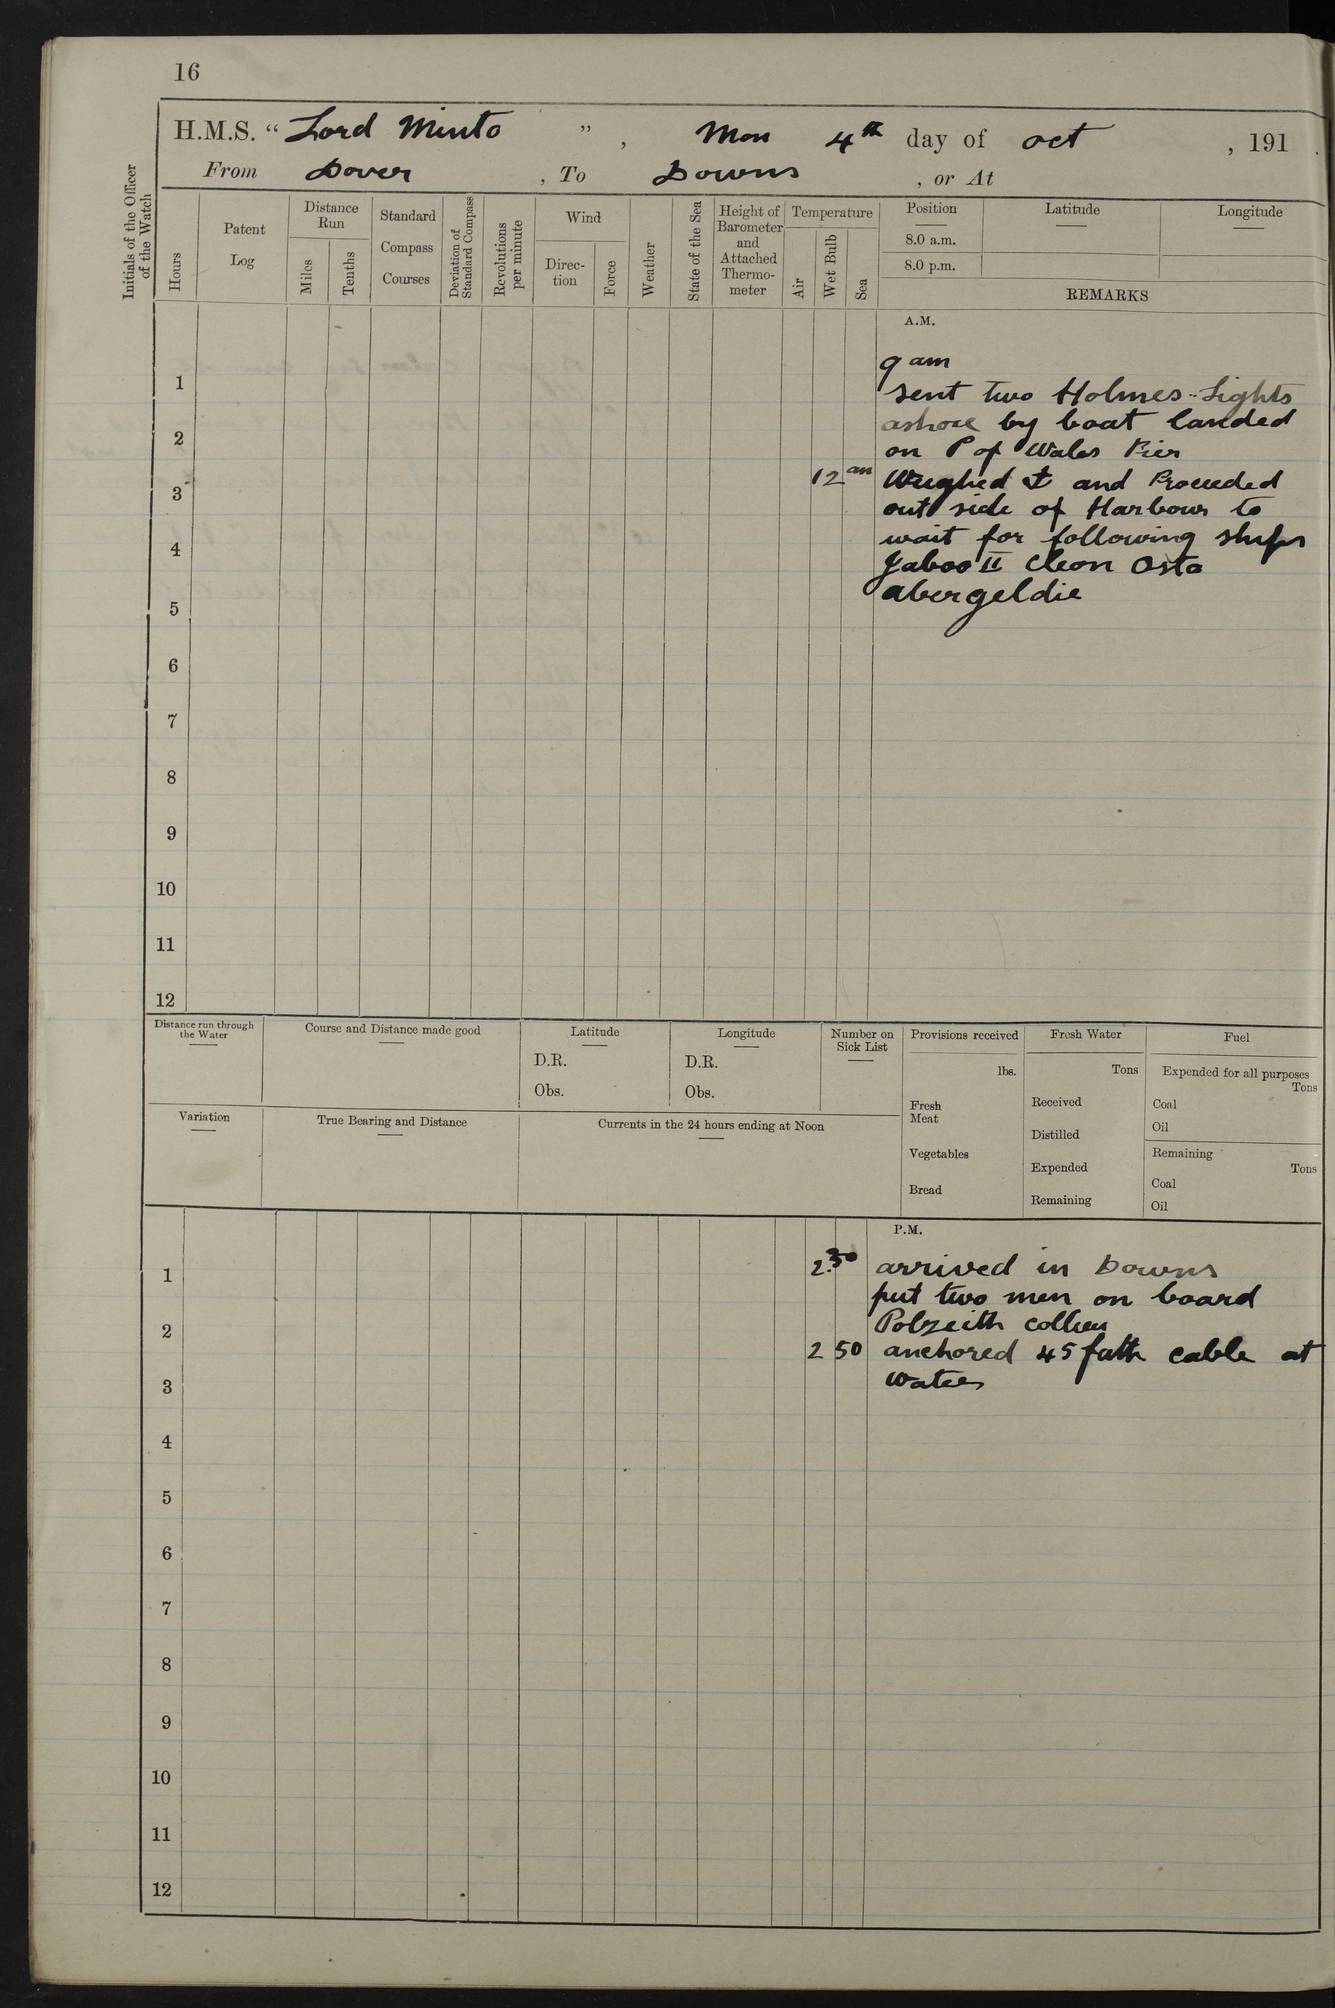 16
H.M.S. “ Lord Minto ”, Mon 4th day of Oct , 191 .
From Dover , To Downs , or At
Initials of the Officer of the Watch
Hours
Patent Log
Distance Run
Miles
Tenths
Standard Compass Courses
Deviation of Standard Compass
Revolutions per minute
Wind
Direction
Force
Weather
State of the Sea
Height of Barometer and Attached Thermometer
Temperature
Air
Wet Bulb
Sea
Position
Latitude
Longitude
8.0 a.m.
8.0 p.m.
REMARKS
A.M.
9 am
1
sent two Holmes-Lights
ashore by boat landed
2
on P of Wales Pier
12 am Weighed ⚓ and Proceeded
3
out side of Harbour to
wait for following ships
4
II Cleon Osta
5
abergeldie
6
7
8
9
10
11
12
Distance run through the Water
Course and Distance made good
Latitude
D.R.
Obs.
Longitude
D.R.
Obs.
Number on Sick List
Provisions received
lbs.
Fresh Meat
Vegetables
Bread
Fresh Water
Tons
Received
Distilled
Expended
Remaining
Fuel
Expended for all purposes
Tons
Coal
Oil
Remaining
Tons
Coal
Oil
Variation
True Bearing and Distance
Currents in the 24 hours ending at Noon
P.M.
1
2.30 arrived in Downs
put two men on board
2
Polzeith collier
2 50 anchored 45 fath cable at
3
water
4
5
6
7
8
9
10
11
12